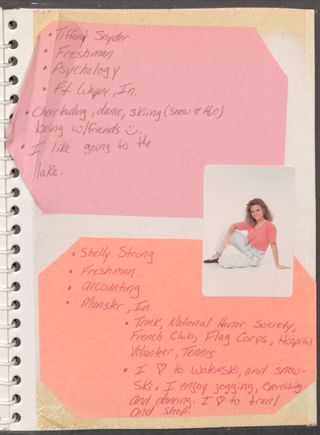 • Tiffany Snyder
• Freshmen
• Psychology
• Ft. Wayne, In.
• Cheerleading, dance, skiing (snow & H2O)
being w/friends ☺.
• I like going to the
lake.
• Shelly Strong
• Freshman
• accounting
• Munster, In.
• Track, National Honor Society,
French Club, Flag Corps, Hospital
Volunteer, Tennis
• I ♡ to waterski, and snow-
ski. I enjoy jogging, exercising
and dancing. I ♡ to travel
and shop.